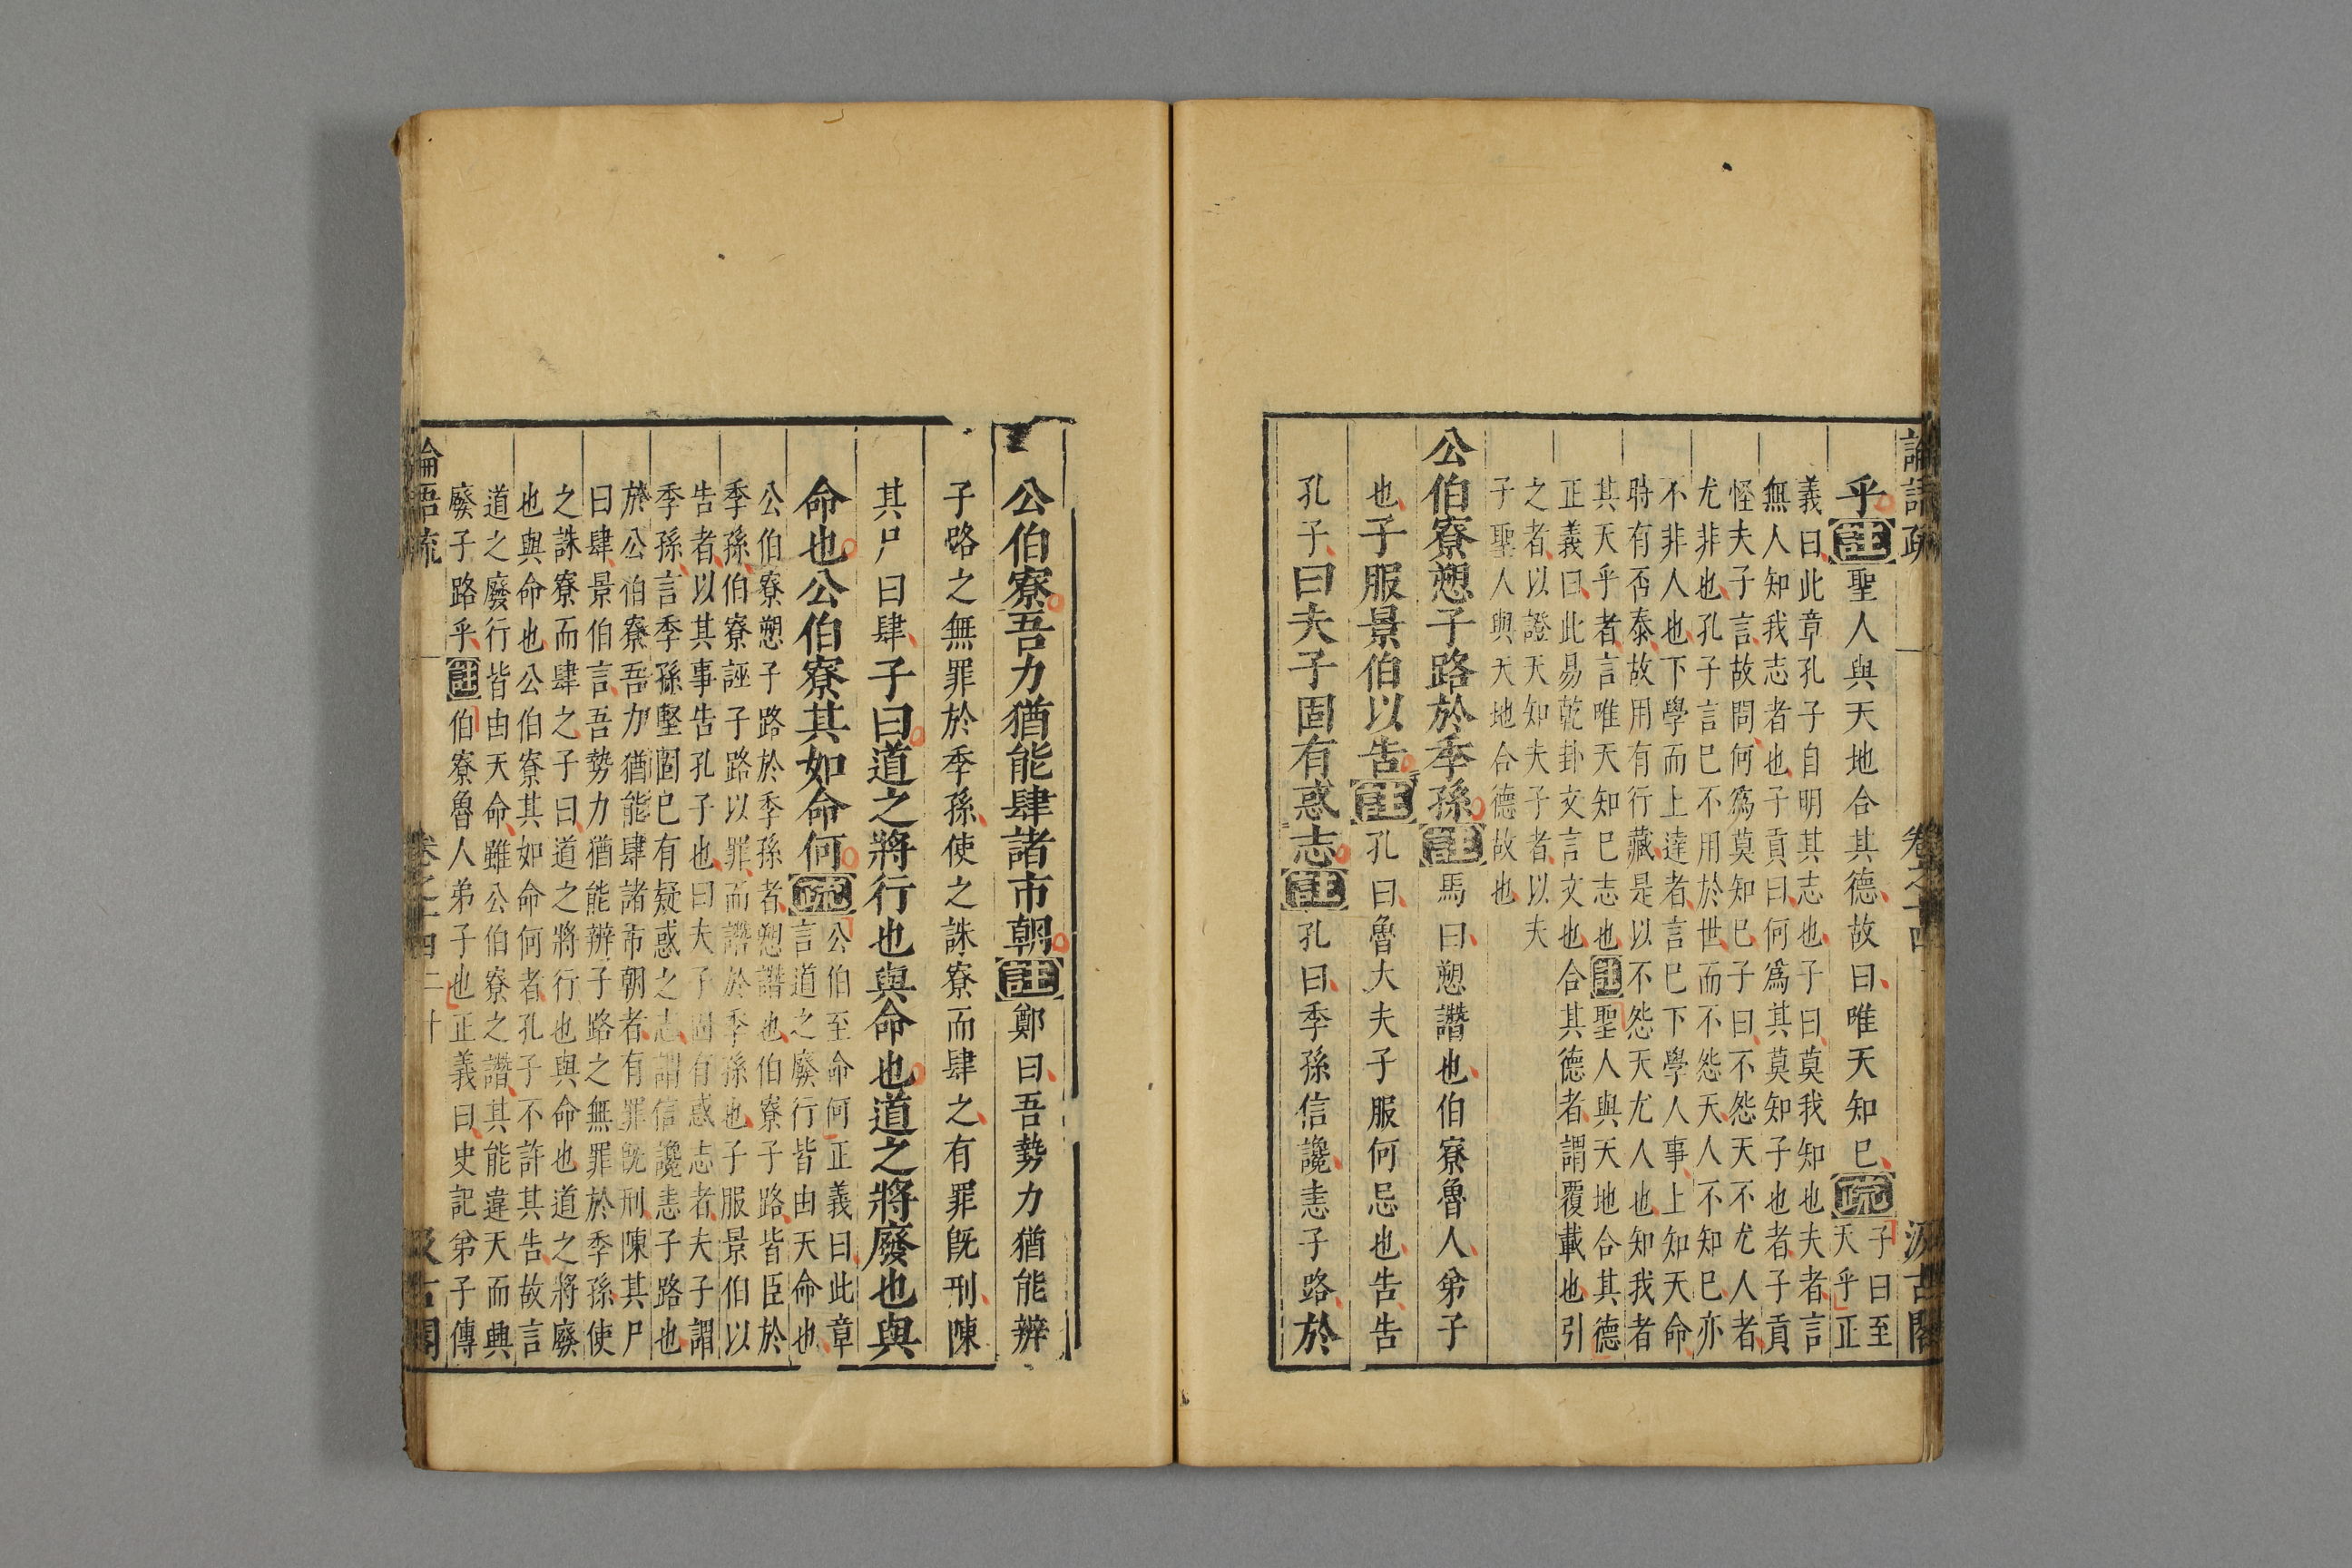 論語疏 卷之十四 汲古閣
乎註聖人與天地合其德故曰唯天知巳疏子曰至
天乎正
義曰此章孔子自明其志也子曰莫我知也夫者言
無人知我志者也子貢曰何爲其莫知子也者子貢
怪夫子言故問何爲莫知巳子曰不怨天不尤人者
尤非也孔子言巳不用於世而不怨天人不知巳亦
不非人也下學而上達者言巳下學人事上知天命
時有否泰故用有行藏是以不怨天尤人也知我者
其天乎者言唯天知巳志也註聖人與天地合其德
正義曰此易乾卦文言文也合其德者謂覆載也引
之者以證天知夫子者以夫
子聖人與天地合德故也
公伯寮愬子路於季孫註馬曰愬譖也伯寮魯人弟子
也子服景伯以告註孔曰魯大夫子服何忌也告告
孔子曰夫子固有惑志註孔曰季孫信讒恚子路於
公伯寮吾力猶能肆諸市朝註鄭曰吾勢力猶能辨
子路之無罪於季孫使之誅寮而肆之有罪旣刑陳
其尸曰肆子曰道之將行也與命也道之將廢也與
命也公伯寮其如命何疏公伯至命何正義曰此章
言道之廢行皆由天命也
公伯寮愬子路於季孫者愬譖也伯寮子路皆臣於
季孫伯寮誣子路以罪而譖於季孫也子服景伯以
告者以其事告孔子也曰夫子固有惑志者夫子謂
季孫言季孫堅固巳有疑惑之志謂信讒恚子路也
於公伯寮吾力猶能肆諸市朝者有罪旣刑陳其尸
曰肆景伯言吾勢力猶能辨子路之無罪於季孫使
之誅寮而肆之子曰道之將行也與命也道之將廢
也與命也公伯寮其如命何者孔子不許其告故言
道之廢行皆由天命雖公伯寮之譖其能違天而興
廢子路乎註伯寮魯人弟子也正義曰史記弟子傳
論語疏 卷之十四 二十 汲古閣